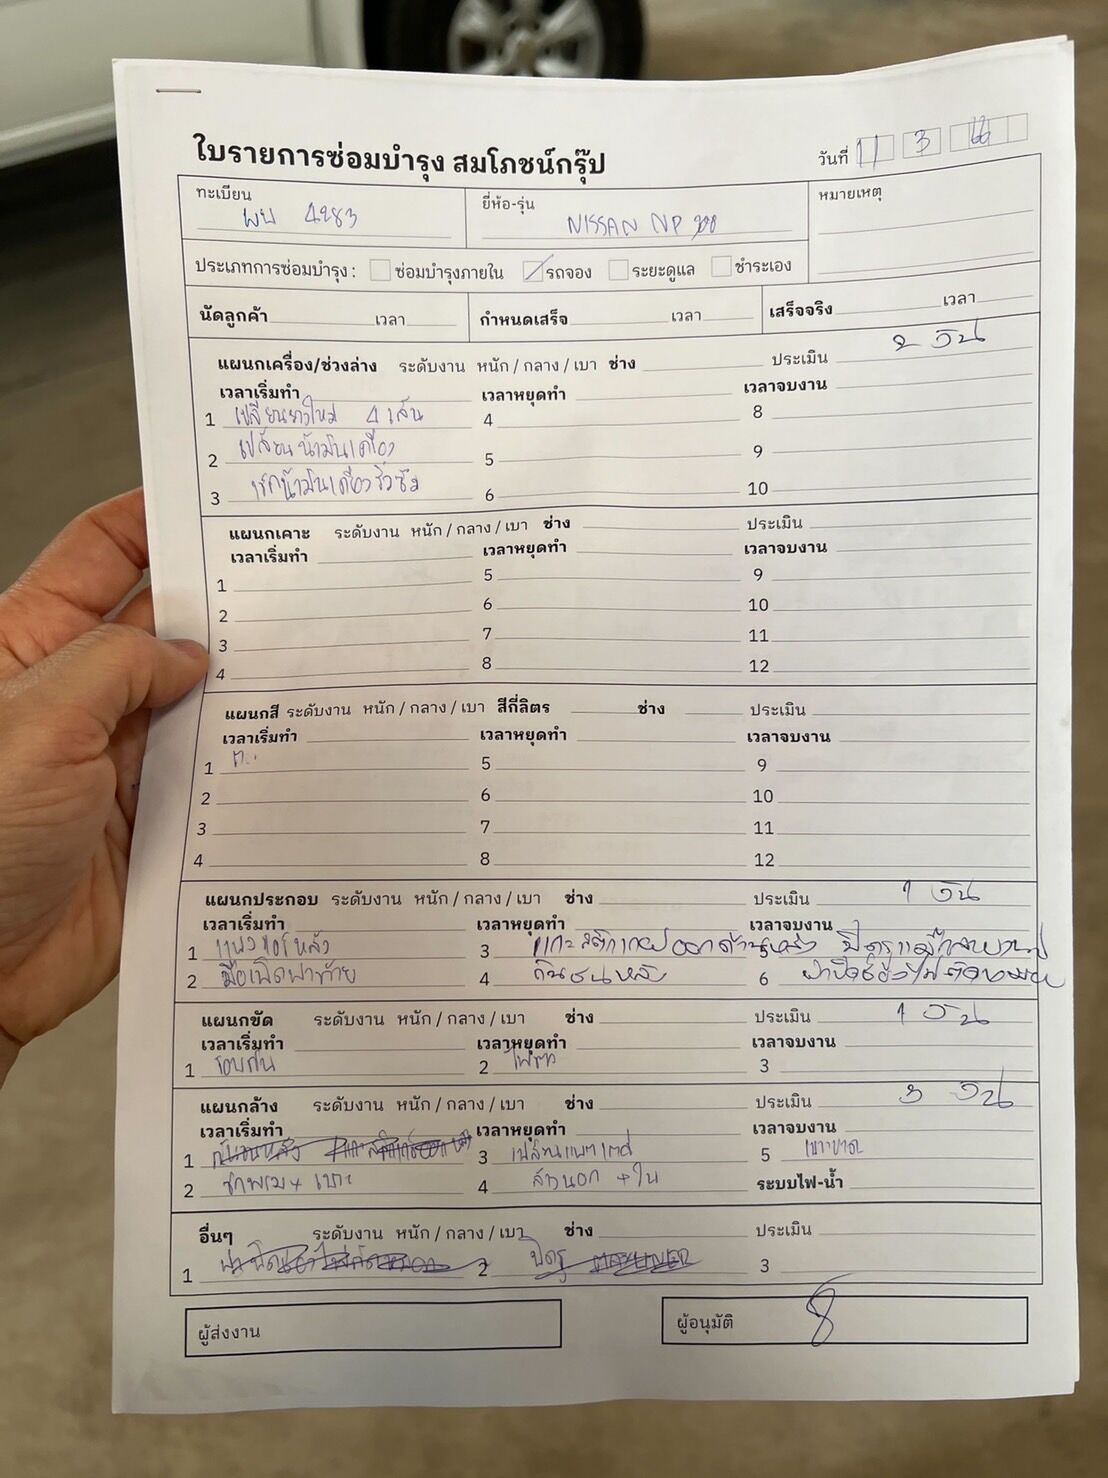 ใบรายการซ่อมบำรุง สมโภชน์กรุ๊ป
วันที่ 11 3 66
ทะเบียน ผบ 4283
ยี่ห้อ-รุ่น NISSAN NP 300
หมายเหตุ
ประเภทการซ่อมบำรุง : ซ่อมบำรุงภายใน รถจอง ระยะดูแล ชำระเอง
นัดลูกค้า เวลา กำหนดเสร็จ เวลา เสร็จจริง เวลา
แผนกเครื่อง/ช่วงล่าง ระดับงาน หนัก / กลาง / เบา ช่าง ประเมิน 2 วัน
เวลาเริ่มทำ เวลาหยุดทำ เวลาจบงาน
1 เปลี่ยนยางใหม่ 4 เส้น 4 8
2 เปลี่ยนน้ำมันเครื่อง 5 9
3 เช็คน้ำมันเครื่องรั่วซึม 6 10
แผนกเคาะ ระดับงาน หนัก / กลาง / เบา ช่าง ประเมิน
เวลาเริ่มทำ เวลาหยุดทำ เวลาจบงาน
1 5 9
2 6 10
3 7 11
4 8 12
แผนกสี ระดับงาน หนัก / กลาง / เบา สีกี่ลิตร ช่าง ประเมิน
เวลาเริ่มทำ เวลาหยุดทำ เวลาจบงาน
1 5 9
2 6 10
3 7 11
4 8 12
แผนกประกอบ ระดับงาน หนัก / กลาง / เบา ช่าง ประเมิน 1 วัน
เวลาเริ่มทำ เวลาหยุดทำ เวลาจบงาน
1 หลัง 3 แกะสติกเกอร์ออกด้านหลัง 5
2 มือเปิดฝาท้าย 4 กันชนหลัง 6
แผนกขัด ระดับงาน หนัก / กลาง / เบา ช่าง ประเมิน 1 วัน
เวลาเริ่มทำ เวลาหยุดทำ เวลาจบงาน
1 รอบคัน 2 3
แผนกล้าง ระดับงาน หนัก / กลาง / เบา ช่าง ประเมิน 3 วัน
เวลาเริ่มทำ เวลาหยุดทำ เวลาจบงาน
1 3 เปลี่ยนแบตเตอรี่ 5
2 ซักพรม + เบาะ 4 ล้างนอก + ใน ระบบไฟ-น้ำ
อื่นๆ ระดับงาน หนัก / กลาง / เบา ช่าง ประเมิน
1 2 3
ผู้ส่งงาน ผู้อนุมัติ